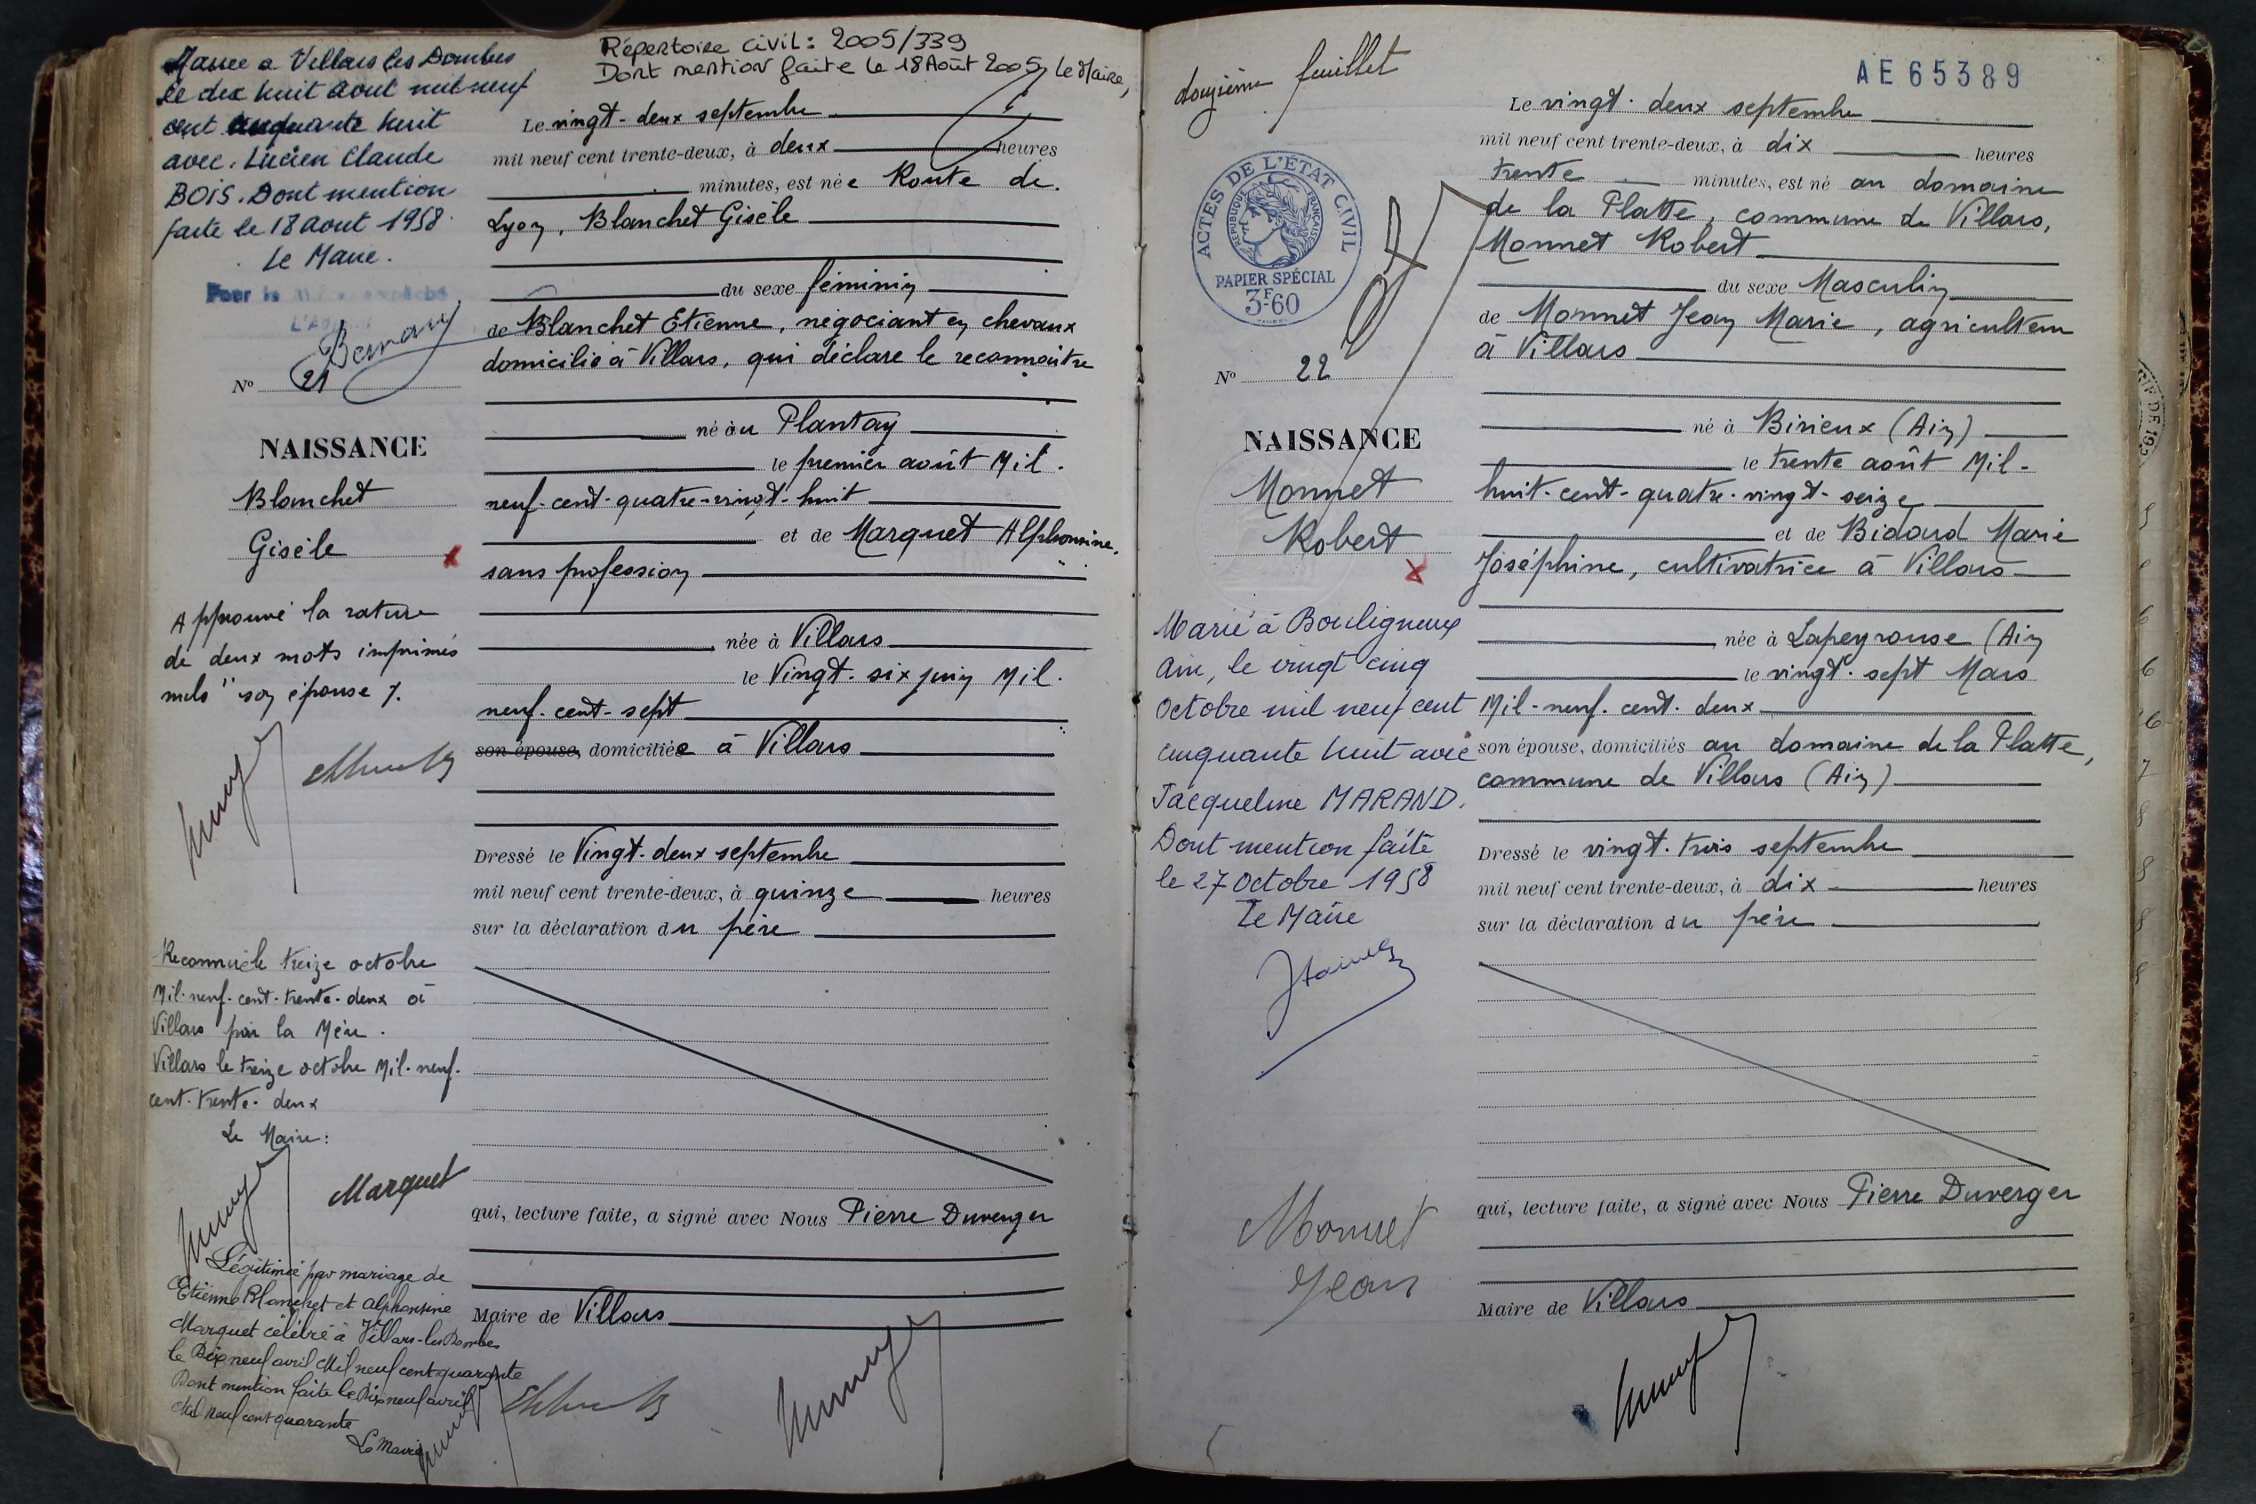 Mariée à Villars les Dombes
le dix huit Aout mil neuf
cent cinquante huit
avec. Lucien Claude
BOIS. Dont mention
faite le 18 Aout 1958.
Le Maire.
Pour le
Bernard
N° 21
NAISSANCE
Blanchet
Gisèle
x
Approuvé la rature
de deux mots imprimés
nuls " son épouse ".
Reconnue le treize octobre
Mil-neuf-cent-trente-deux à
Villars par la Mère.
Villars le treize octobre Mil-neuf-
cent-trente-deux
Le Maire:
Marquet
Légitimée par mariage de
Etienne Blanchet et Alphonsine
Marquet célébré à Villars-les-Dombes
le Dix neuf avril Mil neuf cent quarante
Dont mention faite le Dix neuf avril
Mil neuf cent quarante
Le Maire
Répertoire civil : 2005/339
Dont mention faite le 18 Août 2005, le Maire,
Le vingt-deux septembre
mil neuf cent trente-deux, à deux heures
minutes, est née Route de
Lyon, Blanchet Gisèle
du sexe féminin
de Blanchet Etienne, négociant en chevaux
domicilié à Villars, qui déclare le reconnaître
né au Plantay
le premier août Mil-
neuf-cent-quatre-vingt-huit
et de Marquet Alphonsine,
sans profession
née à Villars
le Vingt-six juin Mil-
neuf-cent-sept
son épouse, domiciliée à Villars
Dressé le Vingt-deux septembre
mil neuf cent trente-deux, à quinze heures
sur la déclaration du père
qui, lecture faite, a signé avec Nous Pierre Duverger
Maire de Villars
douzième feuillet
AE 65389
ACTES DE L'ÉTAT CIVIL
RÉPUBLIQUE FRANÇAISE
PAPIER SPÉCIAL
3F-60
N° 22
NAISSANCE
Monnet
Robert
x
Marié à Bouligneux
Ain, le vingt cinq
Octobre mil neuf cent
cinquante huit avec
Jacqueline MARAND.
Dont mention faite
le 27 Octobre 1958
Le Maire
Monnet
Jean
Le vingt-deux septembre
mil neuf cent trente-deux, à dix heures
trente minutes, est né au domaine
de la Platte, commune de Villars,
Monnet Robert
du sexe Masculin
de Monnet Jean Marie, agriculteur
à Villars
né à Birieux (Ain)
le trente août Mil-
huit-cent-quatre-vingt-seize
et de Bidard Marie
Joséphine, cultivatrice à Villars
née à Lapeyrouse (Ain
le vingt-sept Mars
Mil-neuf-cent-deux
son épouse, domiciliés au domaine de la Platte,
commune de Villars (Ain)
Dressé le vingt-trois septembre
mil neuf cent trente-deux, à dix heures
sur la déclaration du père
qui, lecture faite, a signé avec Nous Pierre Duverger
Maire de Villars